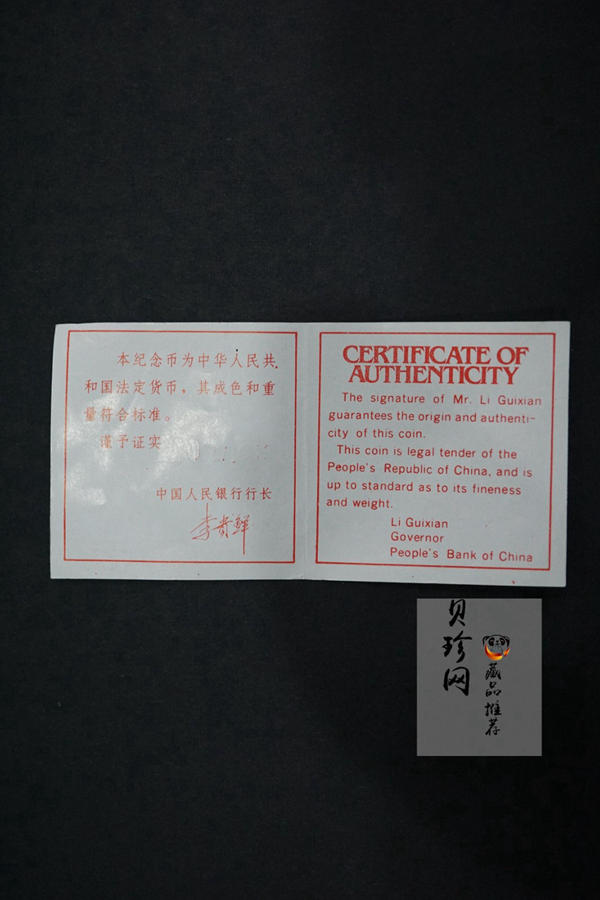 本纪念币为中华人民共
和国法定货币，其成色和重
量符合标准。
谨予证实
中国人民银行行长
李贵鲜
CERTIFICATE OF
AUTHENTICITY
The signature of Mr. Li Guixian
guarantees the origin and authenti-
city of this coin.
This coin is legal tender of the
People's Republic of China, and is
up to standard as to its fineness
and weight.
Li Guixian
Governor
People's Bank of China
贝珍网
藏品推荐